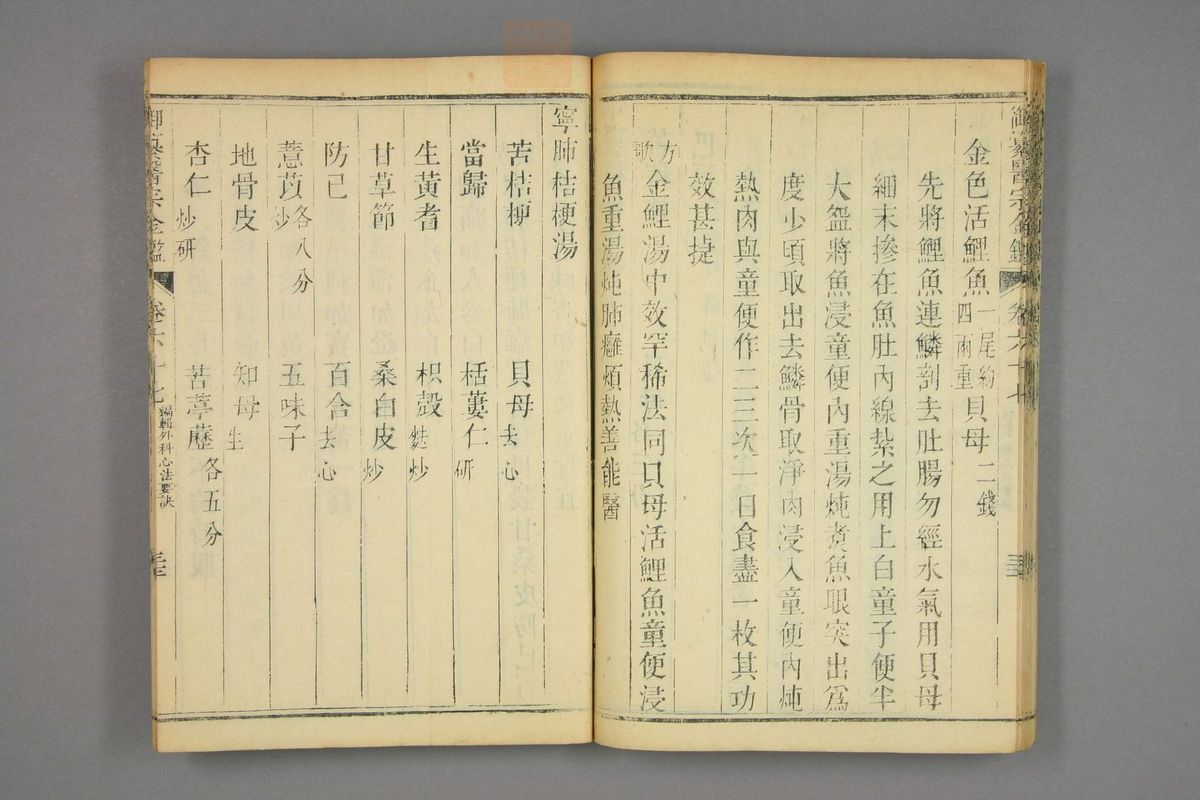 御纂醫宗金鑑 卷六十七
金色活鯉魚一尾約四兩重 貝母二錢
先將鯉魚連鱗剖去肚腸勿經水氣用貝母
細末摻在魚肚內線紮之用上白童子便半
大盌將魚浸童便內重湯炖煮魚眼突出爲
度少頃取出去鱗骨取淨肉浸入童便內炖
熱肉與童便作二三次一日食盡一枚其功
效甚捷
方歌金鯉湯中效罕稀法同貝母活鯉魚童便浸
魚重湯炖肺癰煩熱善能醫
寧肺桔梗湯
苦桔梗 貝母去心
當歸 栝蔞仁研
生黃耆 枳殼麩炒
甘草節 桑白皮炒
防己 百合去心
薏苡炒各八分 五味子
地骨皮 知母生
杏仁炒研 苦葶藶各五分
御纂醫宗金鑑 卷六十七 編輯外科心法要訣